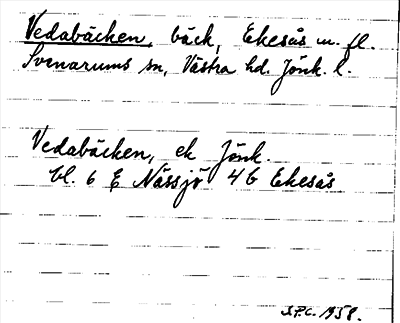 Vedabäcken, bäck, Ekesås m. fl.
Svenarums sn, Västra hd. Jönk. l.
Vedabäcken, ek Jönk.
bl. 6 E Nässjö 4b Ekesås
S.P.C. 1958.